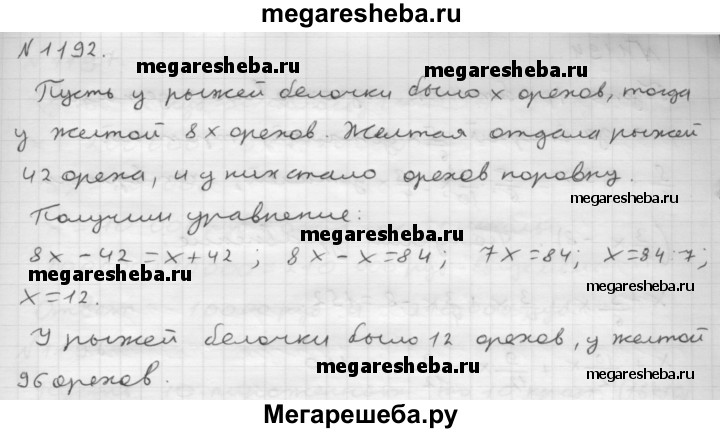 megaresheba.ru
N 1192.
megaresheba.ru
megaresheba.ru
Пусть у рыжей белочки было x орехов, тогда
у желтой 8x орехов. Желтая отдала рыжей
42 ореха, и у них стало орехов поровну.
megaresheba.ru
Получим уравнение:
megaresheba.ru
8x - 42 = x + 42 ; 8x - x = 84 ; 7x = 84; x = 84 : 7;
megaresheba.ru
x = 12.
У рыжей белочки было 12 орехов, у желтой
megaresheba.ru
megaresheba.ru
96 орехов.
Мегарешеба.ру